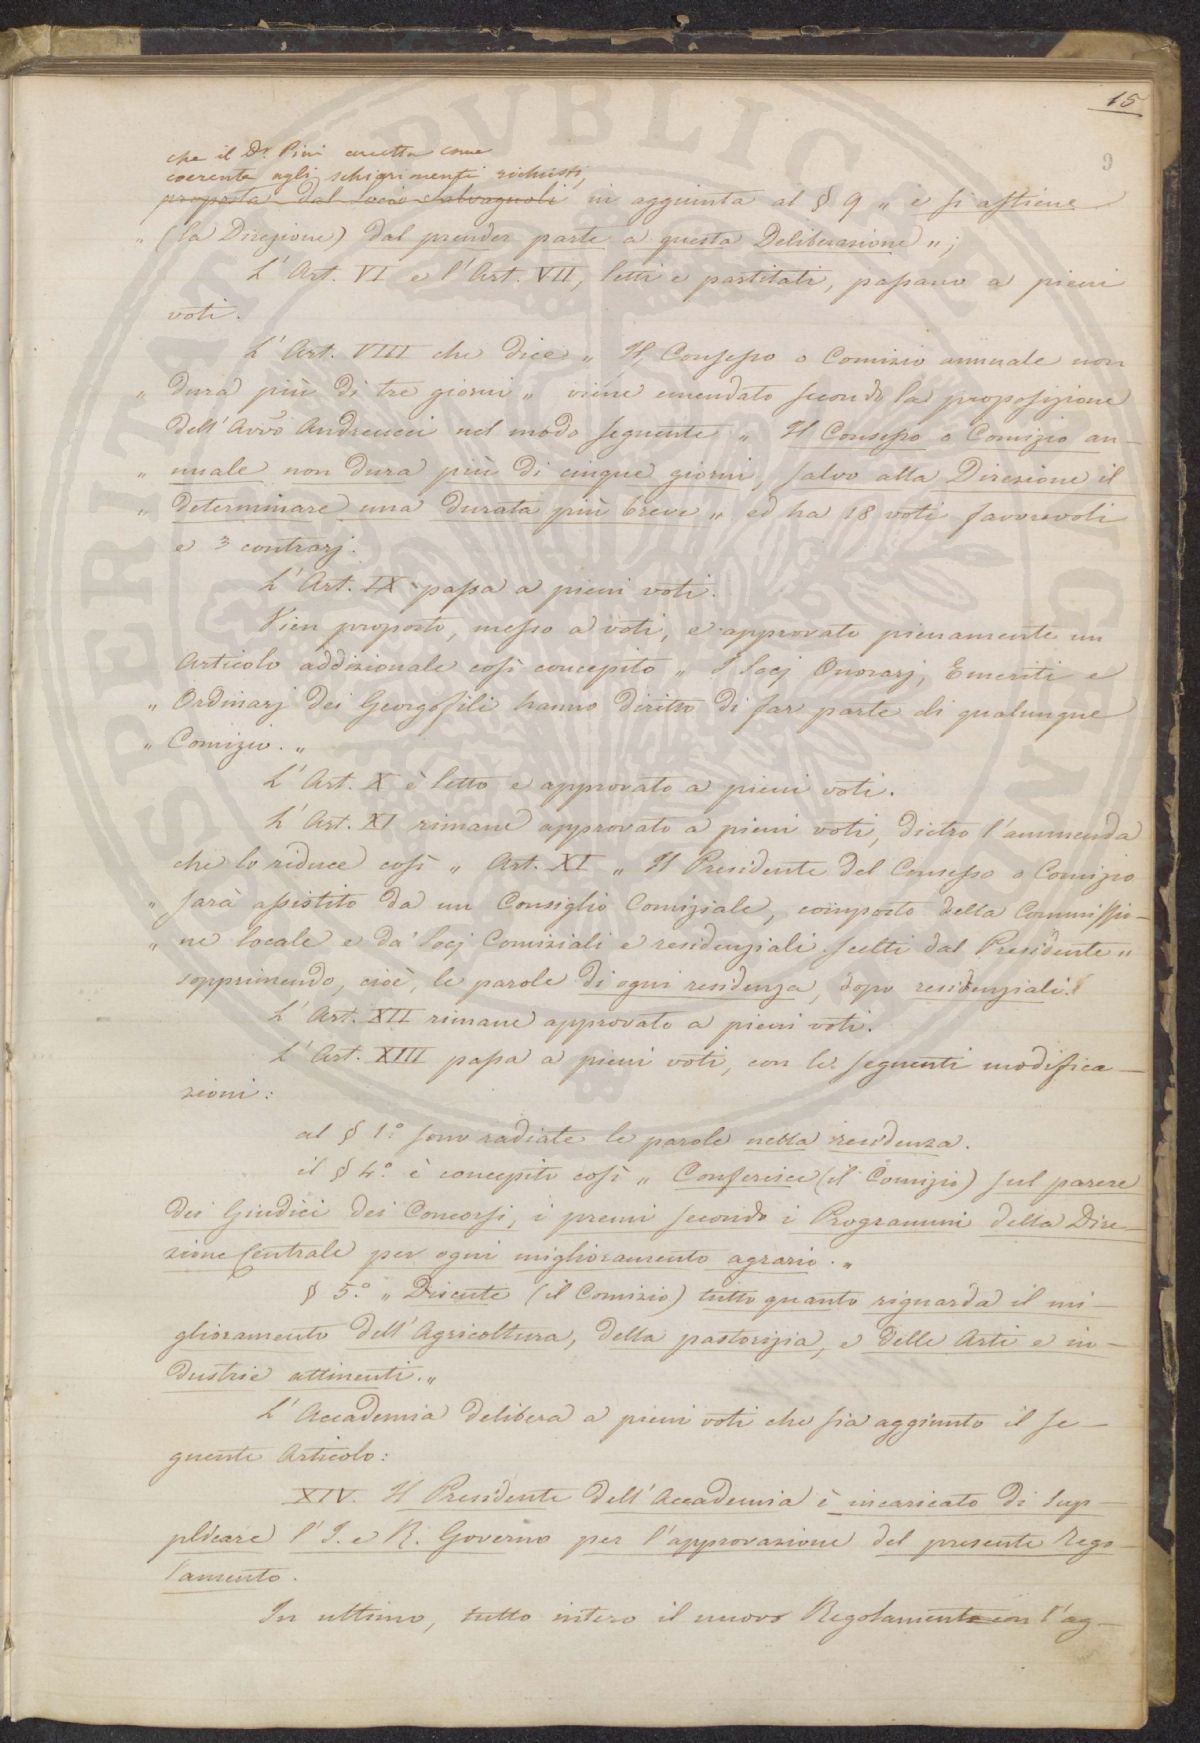 15
9
che il Dr. Pini accetta come
coerente agli schiarimenti richiesti,
proposta dal Socio Salvagnoli in aggiunta al § 9 „ e si astiene
„ (la Direzione) dal prender parte a questa Deliberazione „;
L' Art. VI e l'Art. VII, letti e partitati, passano a pieni
voti.
L' Art. VIII che dice „ Il Consesso o Comizio annuale non
„ dura più di tre giorni „ viene emendato secondo la proposizione
dell' Avvo Andreucci nel modo seguente „ Il Consesso o Comizio an-
„ nuale non dura più di cinque giorni, salvo alla Direzione il
„ determinare una durata più breve „ ed ha 18 voti favorevoli
e 3 contrarj.
L' Art. IX passa a pieni voti.
Vien proposto, messo a voti, e approvato pienamente un
Articolo addizionale così concepito „ I Socj Onorarj, Emeriti e
„ Ordinarj dei Georgofili hanno diritto di far parte di qualunque
„ Comizio. „
L' Art. X è letto e approvato a pieni voti.
L' Art. XI rimane approvato a pieni voti, dietro l'ammenda
che lo riduce così „ Art. XI „ Il Presidente del Consesso o Comizio
„ sarà assistito da un Consiglio Comiziale, composto della Commissio-
„ ne locale e da' Socj Comiziali e residenziali scelti dal Presidente „
sopprimendo, cioè, le parole di ogni residenza, dopo residenziali.
L' Art. XII rimane approvato a pieni voti.
L' Art. XIII passa a pieni voti, con le seguenti modifica-
zioni:
al § 1.° sono radiate le parole nella residenza.
il § 4.° è concepito così „ Conferisce (il Comizio) sul parere
dei Giudici dei Concorsi, i premi secondo i Programmi della Dire-
zione Centrale per ogni miglioramento agrario. „
§ 5.° „ Discute (il Comizio) tutto quanto riguarda il mi-
glioramento dell' Agricoltura, della pastorizia, e delle Arti e in-
dustrie attinenti. „
L' Accademia delibera a pieni voti che sia aggiunto il se-
guente Articolo:
XIV. Il Presidente dell' Accademia è incaricato di sup-
plicare l' I. e R. Governo per l'approvazione del presente Rego-
lamento.
In ultimo, tutto intero il nuovo Regolamento con l'ag-